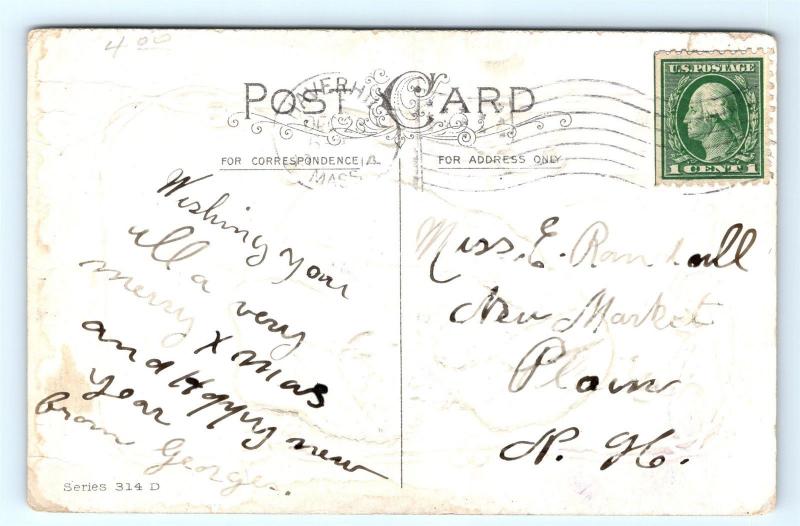 4.00
POST CARD
HAVERHILL
DEC 23
MASS.
U.S. POSTAGE
1 CENT 1
FOR CORRESPONDENCE
FOR ADDRESS ONLY
Wishing your
all a very
merry Xmas
and Happy new
year
from George.
Miss. E. Randall
New Market
Plain
N. H.
Series 314 D